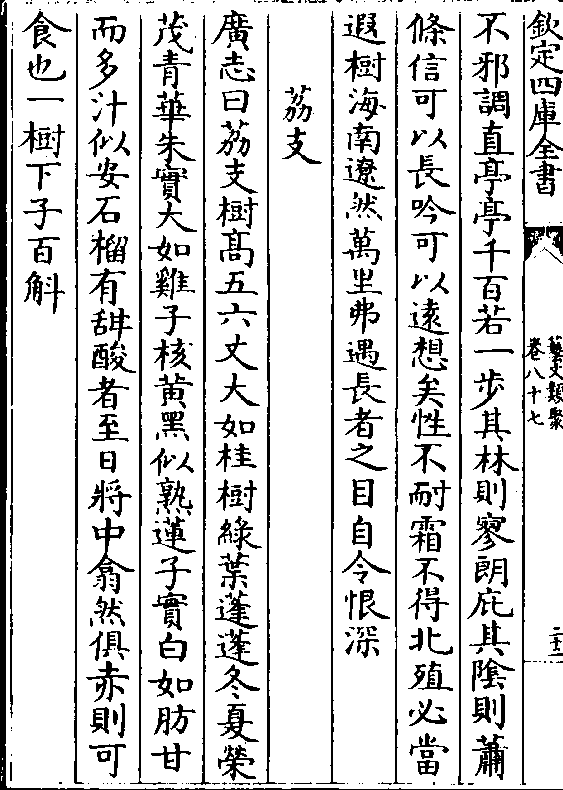 欽定四庫全書
藝文類聚
卷八十七
二十二
不邪調直亭亭千百若一步其林則寥朗庇其陰則蕭
條信可以長吟可以遠想矣性不耐霜不得北殖必當
遐樹海南遼然萬里弗遇長者之目自令恨深
荔支
廣志曰荔支樹髙五六丈大如桂樹綠葉蓬蓬冬夏榮
茂青華朱實大如雞子核黄黑似熟蓮子實白如肪甘
而多汁似安石榴有甜酸者至日將中翕然俱赤則可
食也一樹下子百斛